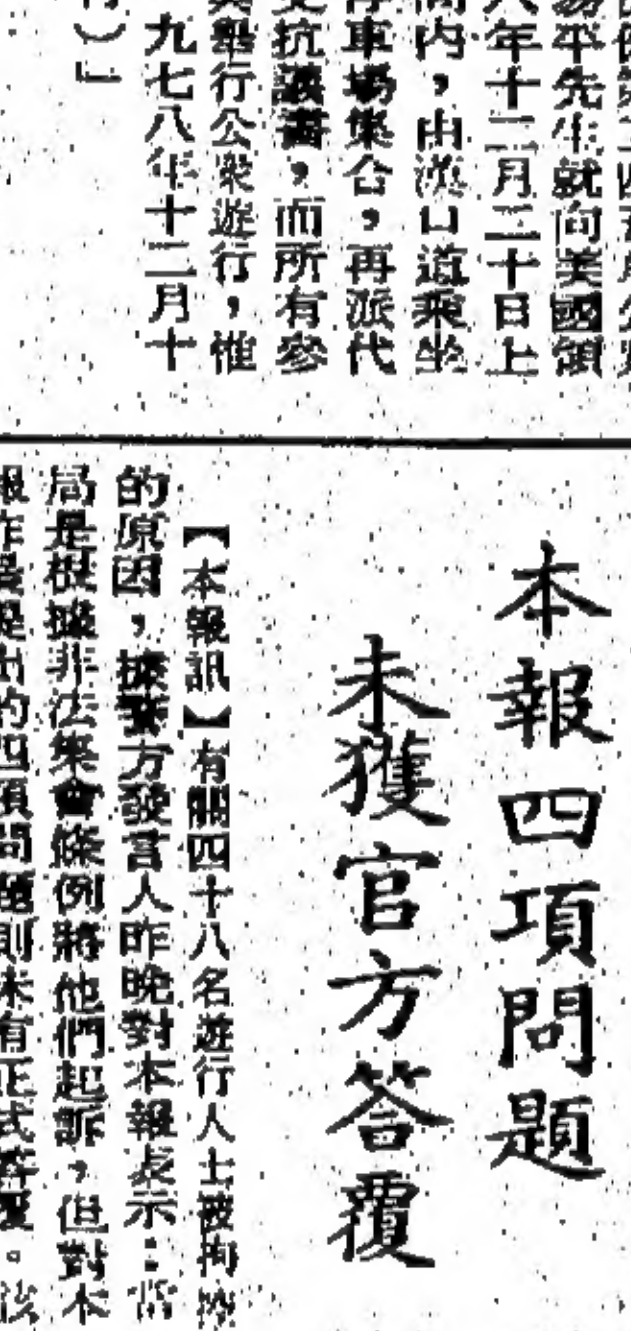 易平先生就向美國領
八年十二月二十日上
間內，由漢口道乘坐
停車場集合，再派代
交抗議書，而所有參
與舉行公衆遊行，惟
九七八年十二月十
行）」
本報四項問題
未獲官方答覆
【本報訊】有關四十八名遊行人士被拘
的原因，據警方發言人昨晚對本報表示：當
局是根據非法集會條例將他們起訴，但對本
報昨晨提出的四項問題則未有正式答覆。該